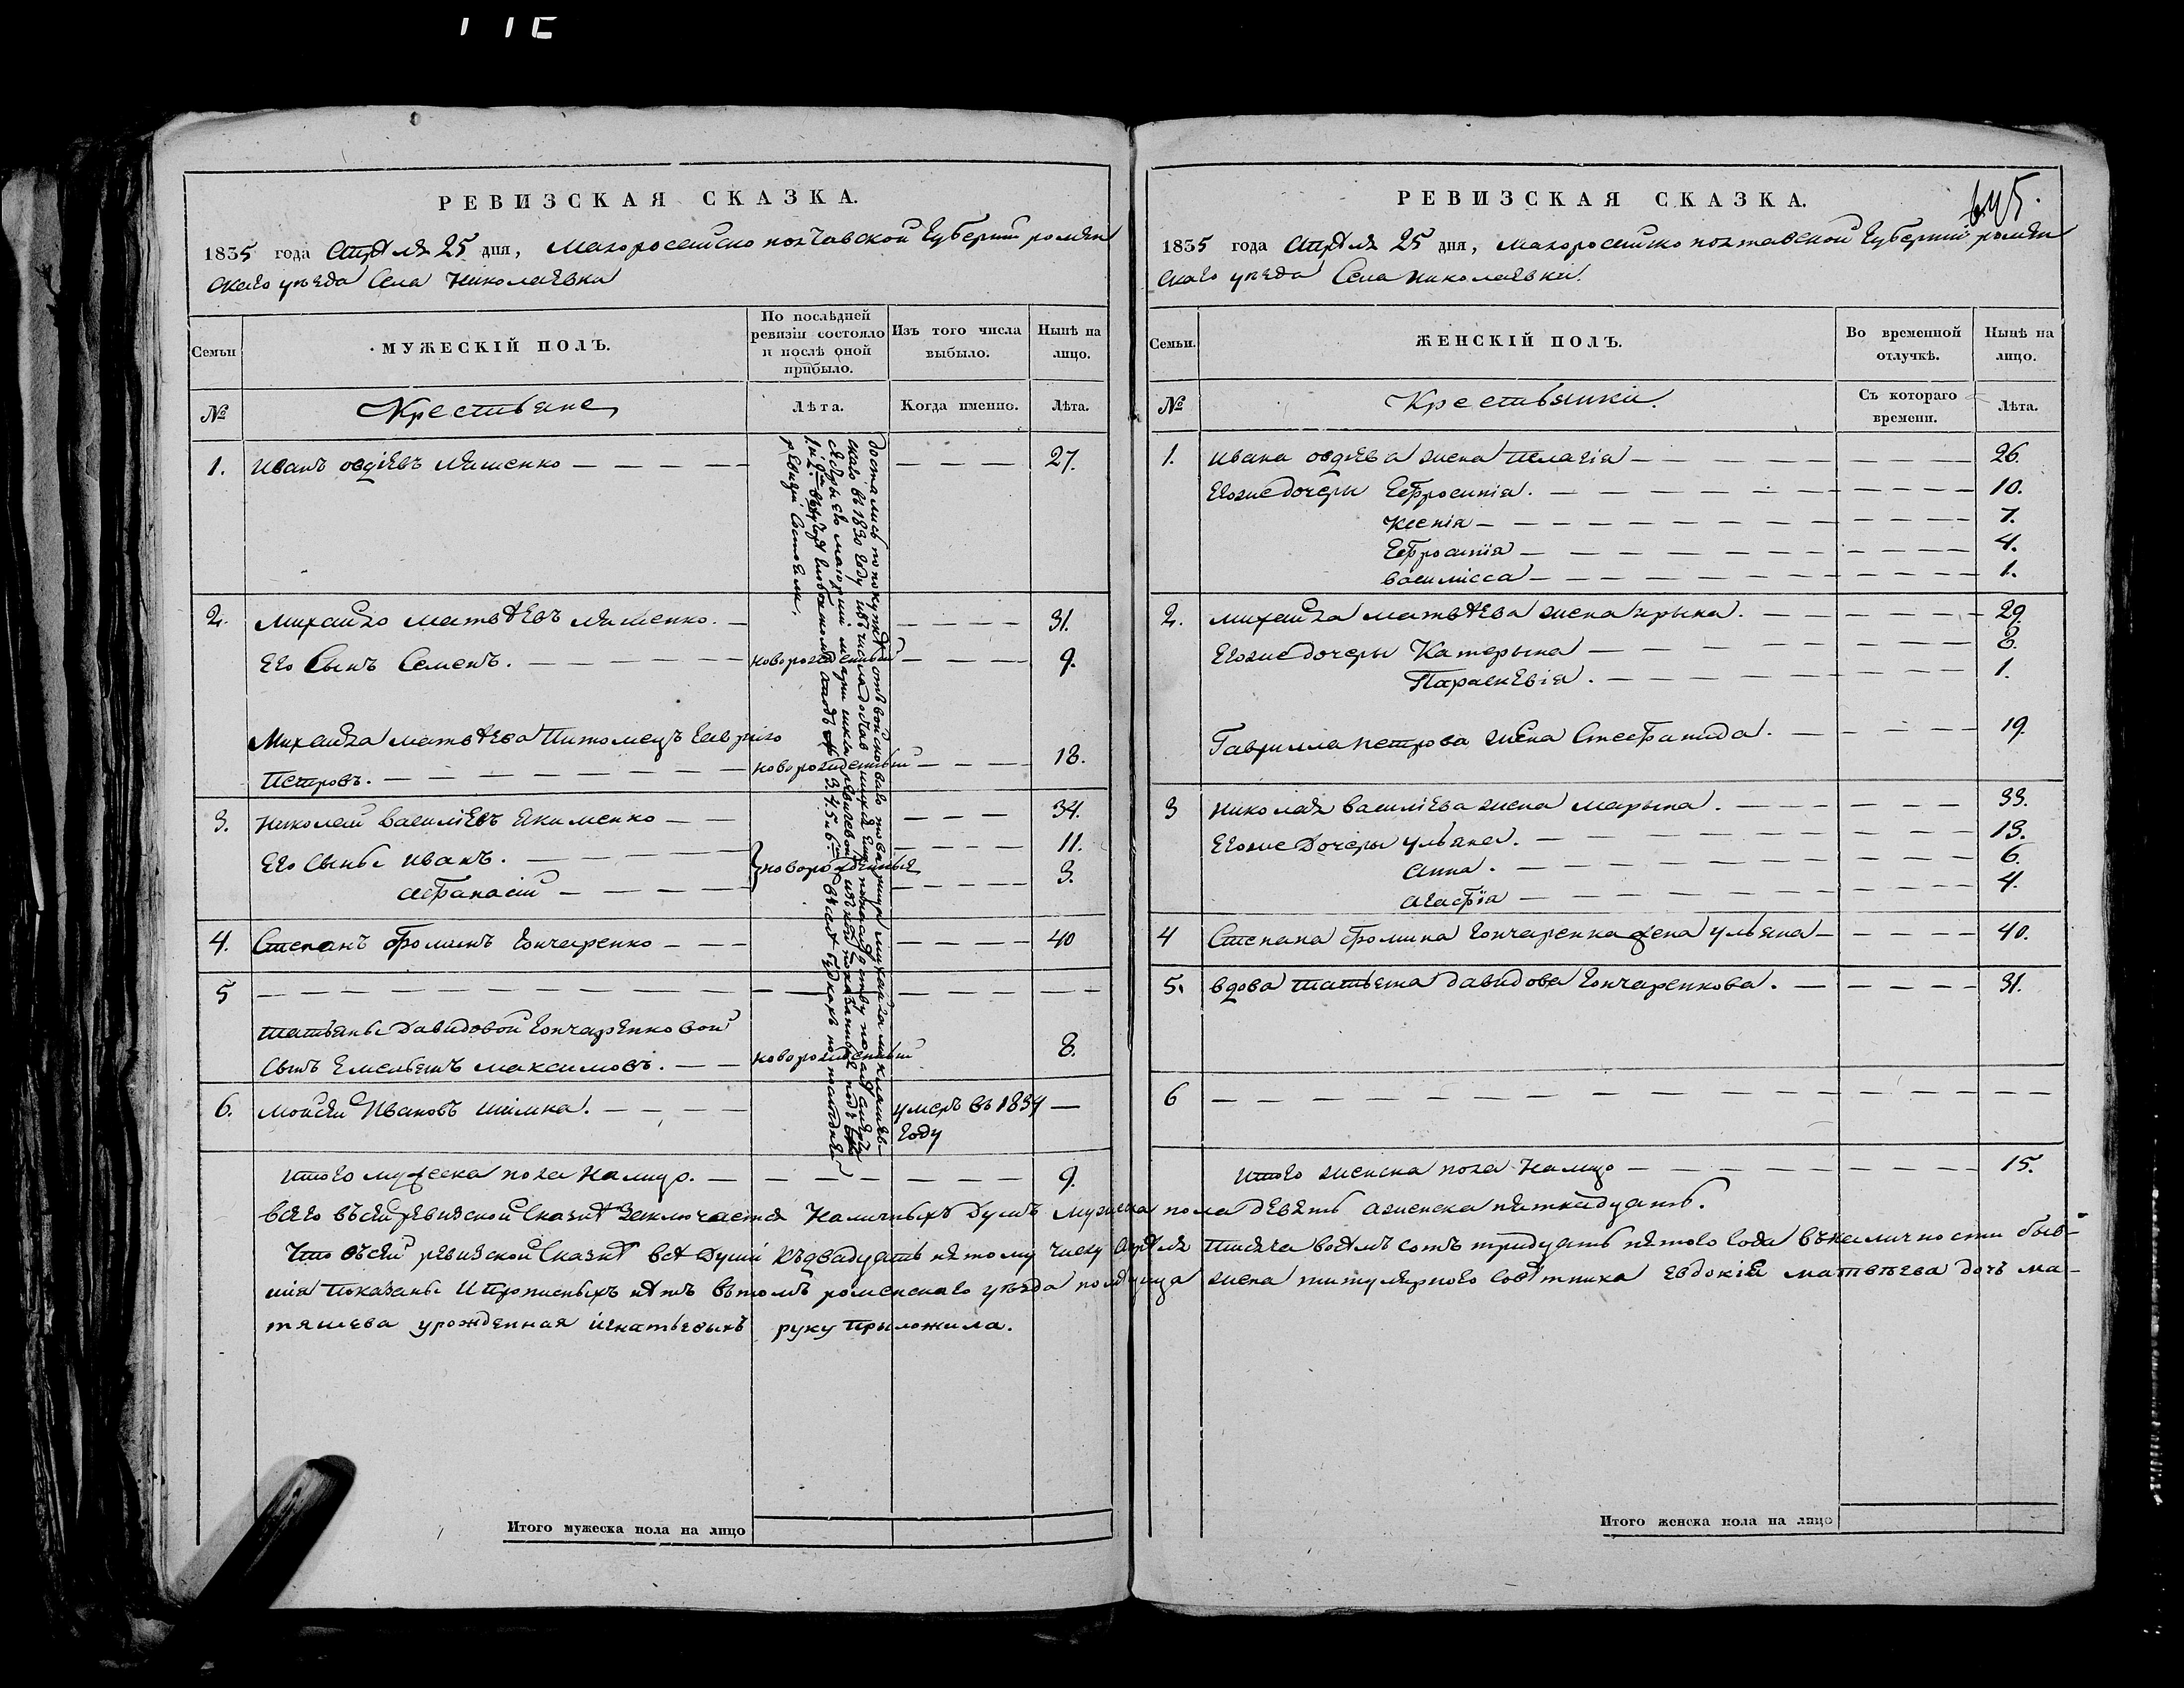 РЕВИЗСКАЯ СКАЗКА.
1835 года Апрѣля 25 дня, Малороссийско полтавской Губернии ромен
скаго уезда Села Николаевки
Семьи
МУЖЕСКІЙ ПОЛЪ.
По послѣдней ревизіи состояло и послѣ оной прибыло.
Изъ того числа выбыло.
Нынѣ на лицо.
№
Крестьяне
Лѣта.
Когда именно.
Лѣта.
1. Иванъ овдіевъ Ляшенко — 27.
2. Михайло Матвѣевъ Ляшенко. — 31.
Его Сынъ Семенъ. — новорожденный — 9.
Михайла Матвѣева Питомецъ Гаврило
Петровъ. — новорожденный — 18.
3. Николай Василіевъ Якименко — 34.
Его Сыны Иванъ. — 11.
новорожденныя
Афанасий — 3.
4. Степанъ Фоминъ Гончаренко — 40
5
Татьяны Давидовой Гончаренковой
Сынъ Емельянъ Максимовъ. — новорожденный 8.
6. Мойсей Ивановъ Шимка. — умеръ въ 1834 —
Году
достались по покупкѣ отъ войсковаго товарища Михайла
скаго въ 1830 Году
ревизіи Состояли.
Итого мужеска пола на лицо. — 9.
РЕВИЗСКАЯ СКАЗКА.
645.
1835 года Апрѣля 25 дня, Малороссийско полтавской Губернии ромен
скаго уезда Села Николаевки.
Семьи.
ЖЕНСКІЙ ПОЛЪ.
Во временной отлучкѣ.
Нынѣ на лицо.
№
Крестьянки.
Съ котораго времени.
Лѣта.
1. Ивана овдіева жена Пелагія — 26.
Егоже дочеры Ефросинія. — 10.
Ксенія — 7.
Ефросинія — 4.
Василисса — 1.
2. Михайла Матвѣева жена Ирына. — 29.
Егоже дочеры Катерына — 8.
Параскевія. — 1.
Гаврилла Петрова жена Стефанида. — 19.
3 Николая Василіева жена Марына. — 33.
Егоже Дочеры Ульяна. — 13.
Анна. — 6.
Агафія — 4.
4 Степана Фомина Гончаренка жена Ульяна — 40.
5. вдова Татьяна Давидова Гончаренкова. — 31.
6
Итого женска пола На лицо — 15.
всего въ сей ревизской Сказкѣ Заключается Наличныхъ Душъ Мужеска пола девять аженска пятнадцать.
Что въсей ревизской Сказкѣ всѣ Души Къдвадцать пятому числу Апрѣля Тысяча восѣмъ сотъ тридцать пятого Года въналичности быв-
шія Показаны И Прописныхъ нѣтъ вътомъ роменскаго уезда помѣщица жена титулярного Совѣтника Евдокія Матвеева дочъ Ма-
тяшева урожденная Игнатьевыхъ руку Прыложила.
Итого мужеска пола на лицо
Итого женска пола на лицо